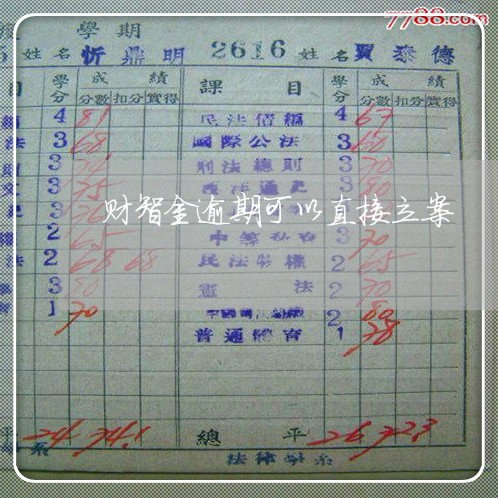 7788.com
學期
姓名 忻鼎明 2616 姓名 賈泰德
目 學分 成績 課目 學分 成績
分數 扣分 實得 分數 扣分 實得
4 81 民法債編 4 67
法 3 68 國際公法 3 60
3 刑法總則 3 70
3 75 3 80
财智金逾期可以直接立案
2 65 3 70
法 2 68 68 民法物權 2 65
3 80 憲法 2 70
1 70 2 80
普通體育 1 78
平 24 74.1 總平 26 72.3
系 法律學系